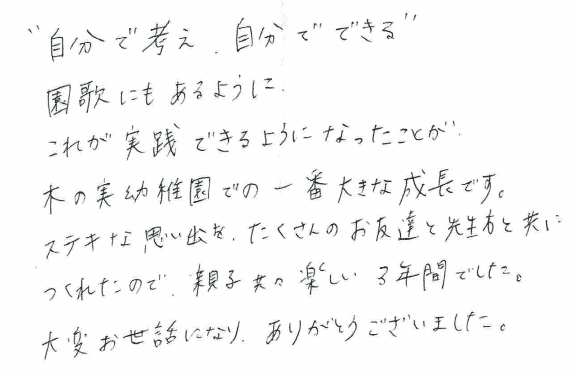 "自分で考え、自分でできる"
園歌にもあるように、
これが実践できるようになったことが
木の実幼稚園での一番大きな成長です。
ステキな思い出を、たくさんのお友達と先生方と共に
つくれたので、親子共々楽しい3年間でした。
大変お世話になり、ありがとうございました。